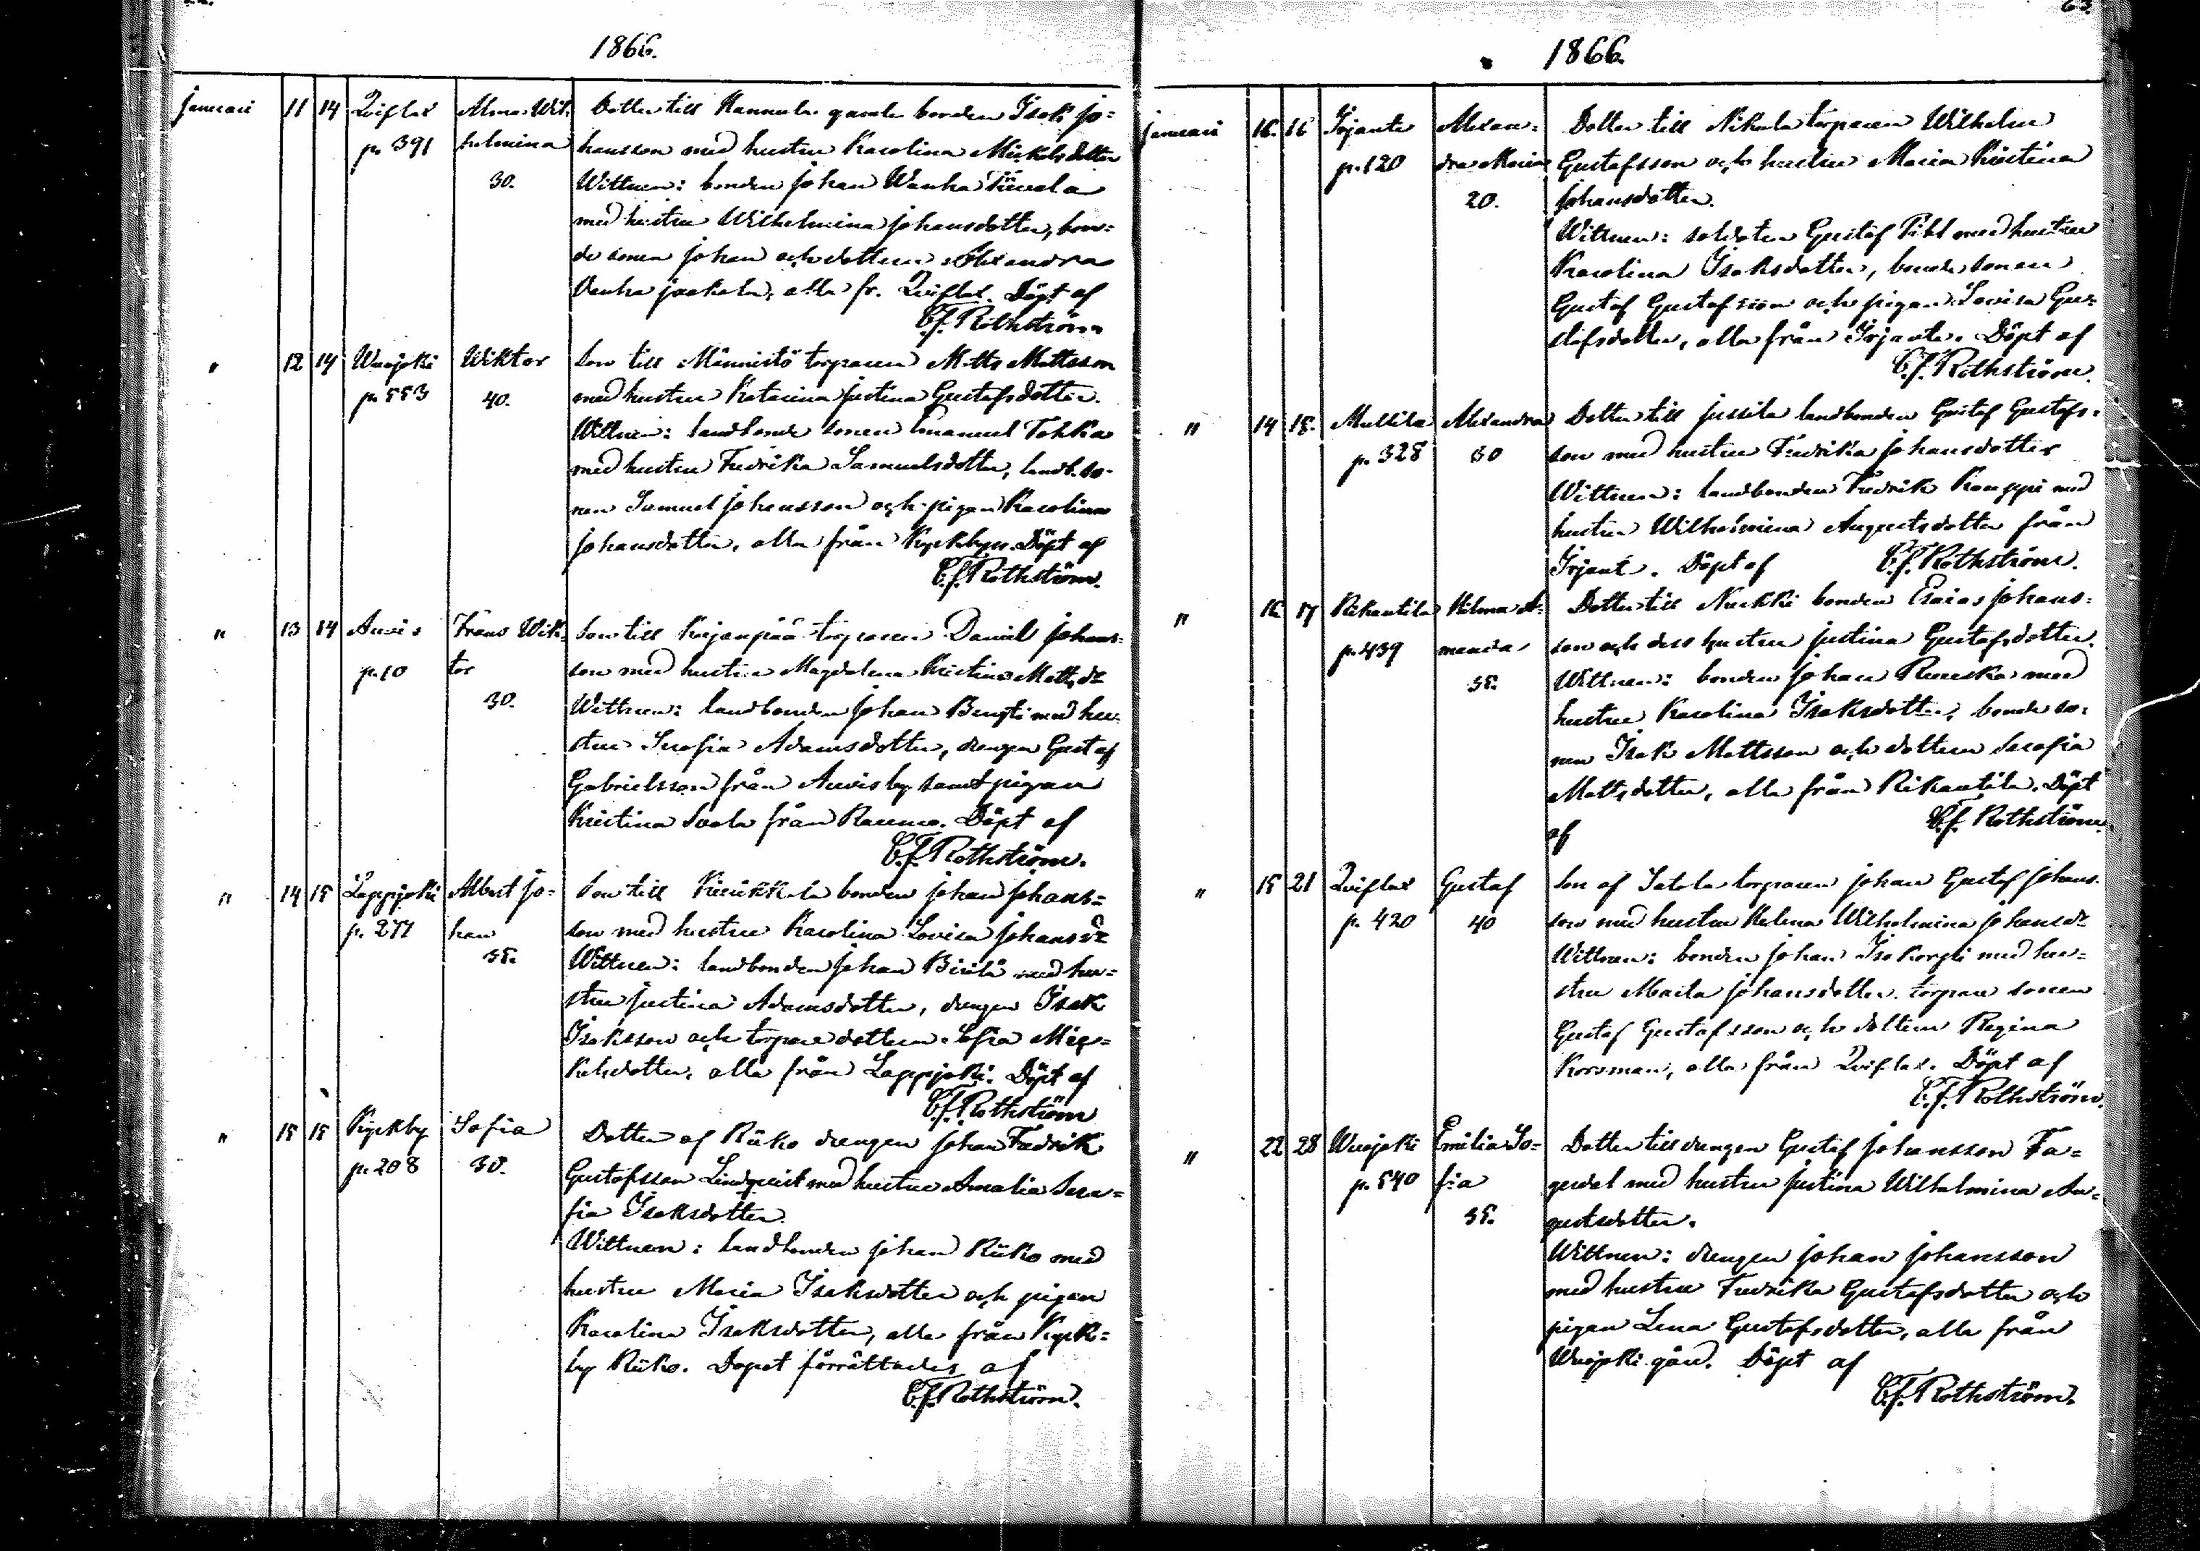 1866.
Januari 11 14 Qviflax Alma Wil- Dotter till Hannula gamla bonden Isak Jo-
p. 391 helmina hansson med hustru Karolina Mickelsdotter
30. Wittnen: bonden Johan Wanha
med hustru Wilhelmina Johansdotter, bon-
de sonen Johan och dottren Alexandra
Vanha Jaakola, alla fr. Qviflax. Döpt af
C.J. Rothström
" 12 14 Wuojoki Wiktor Son till Männistö torparen Matts Mattsson
p. 553 40. med hustru Katarina Justina Gustafsdotter.
Wittnen: landbonde sonen Emanuel Tokka
med hustru Fredrika Samuelsdotter, landb. so-
nen Samuel Johansson och pigan Karolina
Johansdotter, alla från Kyrkbyn. Döpt af
C.J. Rothström.
" 13 14 Auvis Frans Wik- Son till Kirjanpää torparen Daniel Johans-
p. 10 tor son med hustru Magdalena Kristina Mattsdr
30. Wittnen: landbonden Johan Bengti med hu-
stru Serafia Adamsdotter, drengen Gustaf
Gabrielsson från Auvis by samt pigan
Kristina från Raumo. Döpt af
C.J. Rothström.
" 14 15 Lappjoki Albert Jo- Son till bonden Johan Johans-
p. 277 han son med hustru Karolina Lovisa Johansdr
35. Wittnen: landbonden Johan med hu-
stru Justina Adamsdotter, drengen Isak
Isaksson och torpare dottren Sofia Mic-
kelsdotter, alla från Lappjoki. Döpt af
C.J. Rothström
" 15 15 Kyrkby Sofia Dotter af Riiko drengen Johan Fredrik
p. 208 30. Gustafsson Lindqvist med hustru Amalia Sera-
fia Isaksdotter.
Wittnen: landbonden Johan Riiko med
hustru Maria Isaksdotter och pigan
Karolina Isaksdotter, alla från Kyrk-
by Riiko. Dopet förrättades af
C.J. Rothström.
1866.
Januari 16 16 Irjanto Alexan- Dotter till Nikula torparen Wilhelm
p. 120 dra Maria Gustafsson och hustru Maria Kristina
20. Johansdotter.
Wittnen: soldaten Gustaf Pihl med hustru
Karolina Isaksdotter, bonde sonen
Gustaf Gustafsson och pigan Lovisa Gu-
stafsdotter, alla från Irjanto. Döpt af
C.J. Rothström.
" 14 15. Mullila Alexandra Dotter till Jussila landbonden Gustaf Gustafs-
p. 328 30 son med hustru Fredrika Johansdotter
Wittnen: landbonden Fredrik Kauppi med
hustru Wilhelmina Augustsdotter från
Irjant. Döpt af C.J. Rothström.
" 16 17 Rikantila Hilma A- Dotter till Nuckki bonden Esaias Johans-
p. 439 manda son och dess hustru Justina Gustafsdotter.
35. Wittnen: bonden Johan med
hustru Karolina Isaksdotter, bonde so-
nen Isak Mattsson och dottren Serafia
Mattsdotter, alla från Rikantila. Döpt
af C.J. Rothström.
" 15 21 Qviflax Gustaf Son af torparen Johan Gustaf Johans-
p. 420 40 son med hustru Helena Wilhelmina Johansdr
Wittnen: bonden Johan Isokorpi med hu-
stru Maria Johansdotter, torpare sonen
Gustaf Gustafsson och dottren Regina
Korsman, alla från Qviflax. Döpt af
C.J. Rothström.
" 22 28 Wuojoki Emilia So- Dotter till drengen Gustaf Johansson Fa-
p. 540 fia gerdal med hustru Justina Wilhelmina Au-
35. gustsdotter.
Wittnen: drengen Johan Johansson
med hustru Fredrika Gustafsdotter och
pigan Lena Gustafsdotter, alla från
Wuojoki gård. Döpt af
C.J. Rothström.